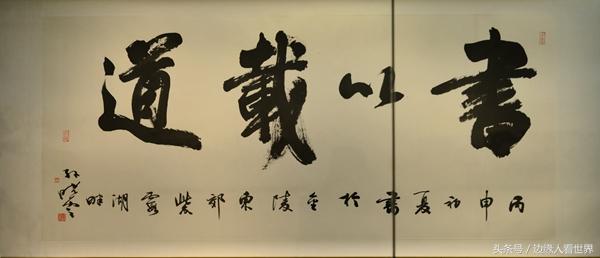 書以載道
丙申初夏書於金陵東郊紫霞湖畔
孙晓云
头条号／边缘人看世界